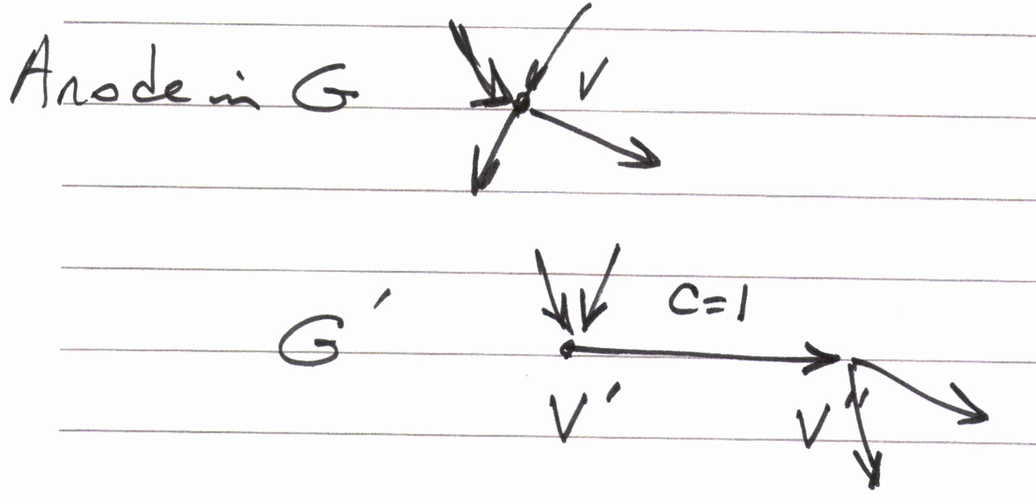 A node in G
V
G′
C=1
V′
V″